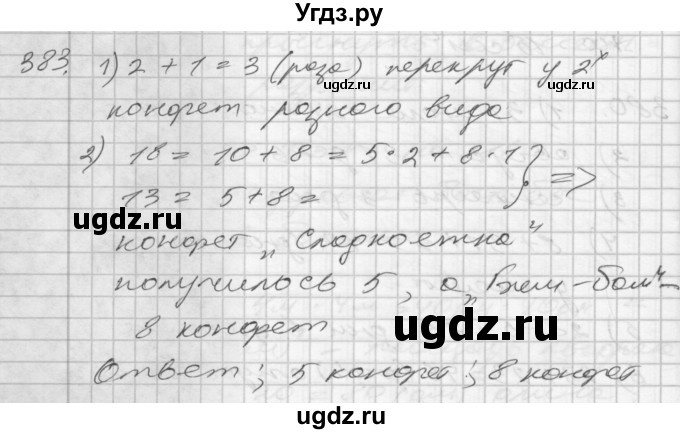 Угдз.ру
383. 1) 2 + 1 = 3 (раза) перекрут у 2х
конфет разного вида
2) 18 = 10 + 8 = 5 · 2 + 8 · 1 } =>
13 = 5 + 8 =
ugdz.ru
конфет „Сладкоежка“
получилось 5, а „Бим-бом“ –
8 конфет
ugdz.ru
Ответ: 5 конфет; 8 конфет
ugdz.ru